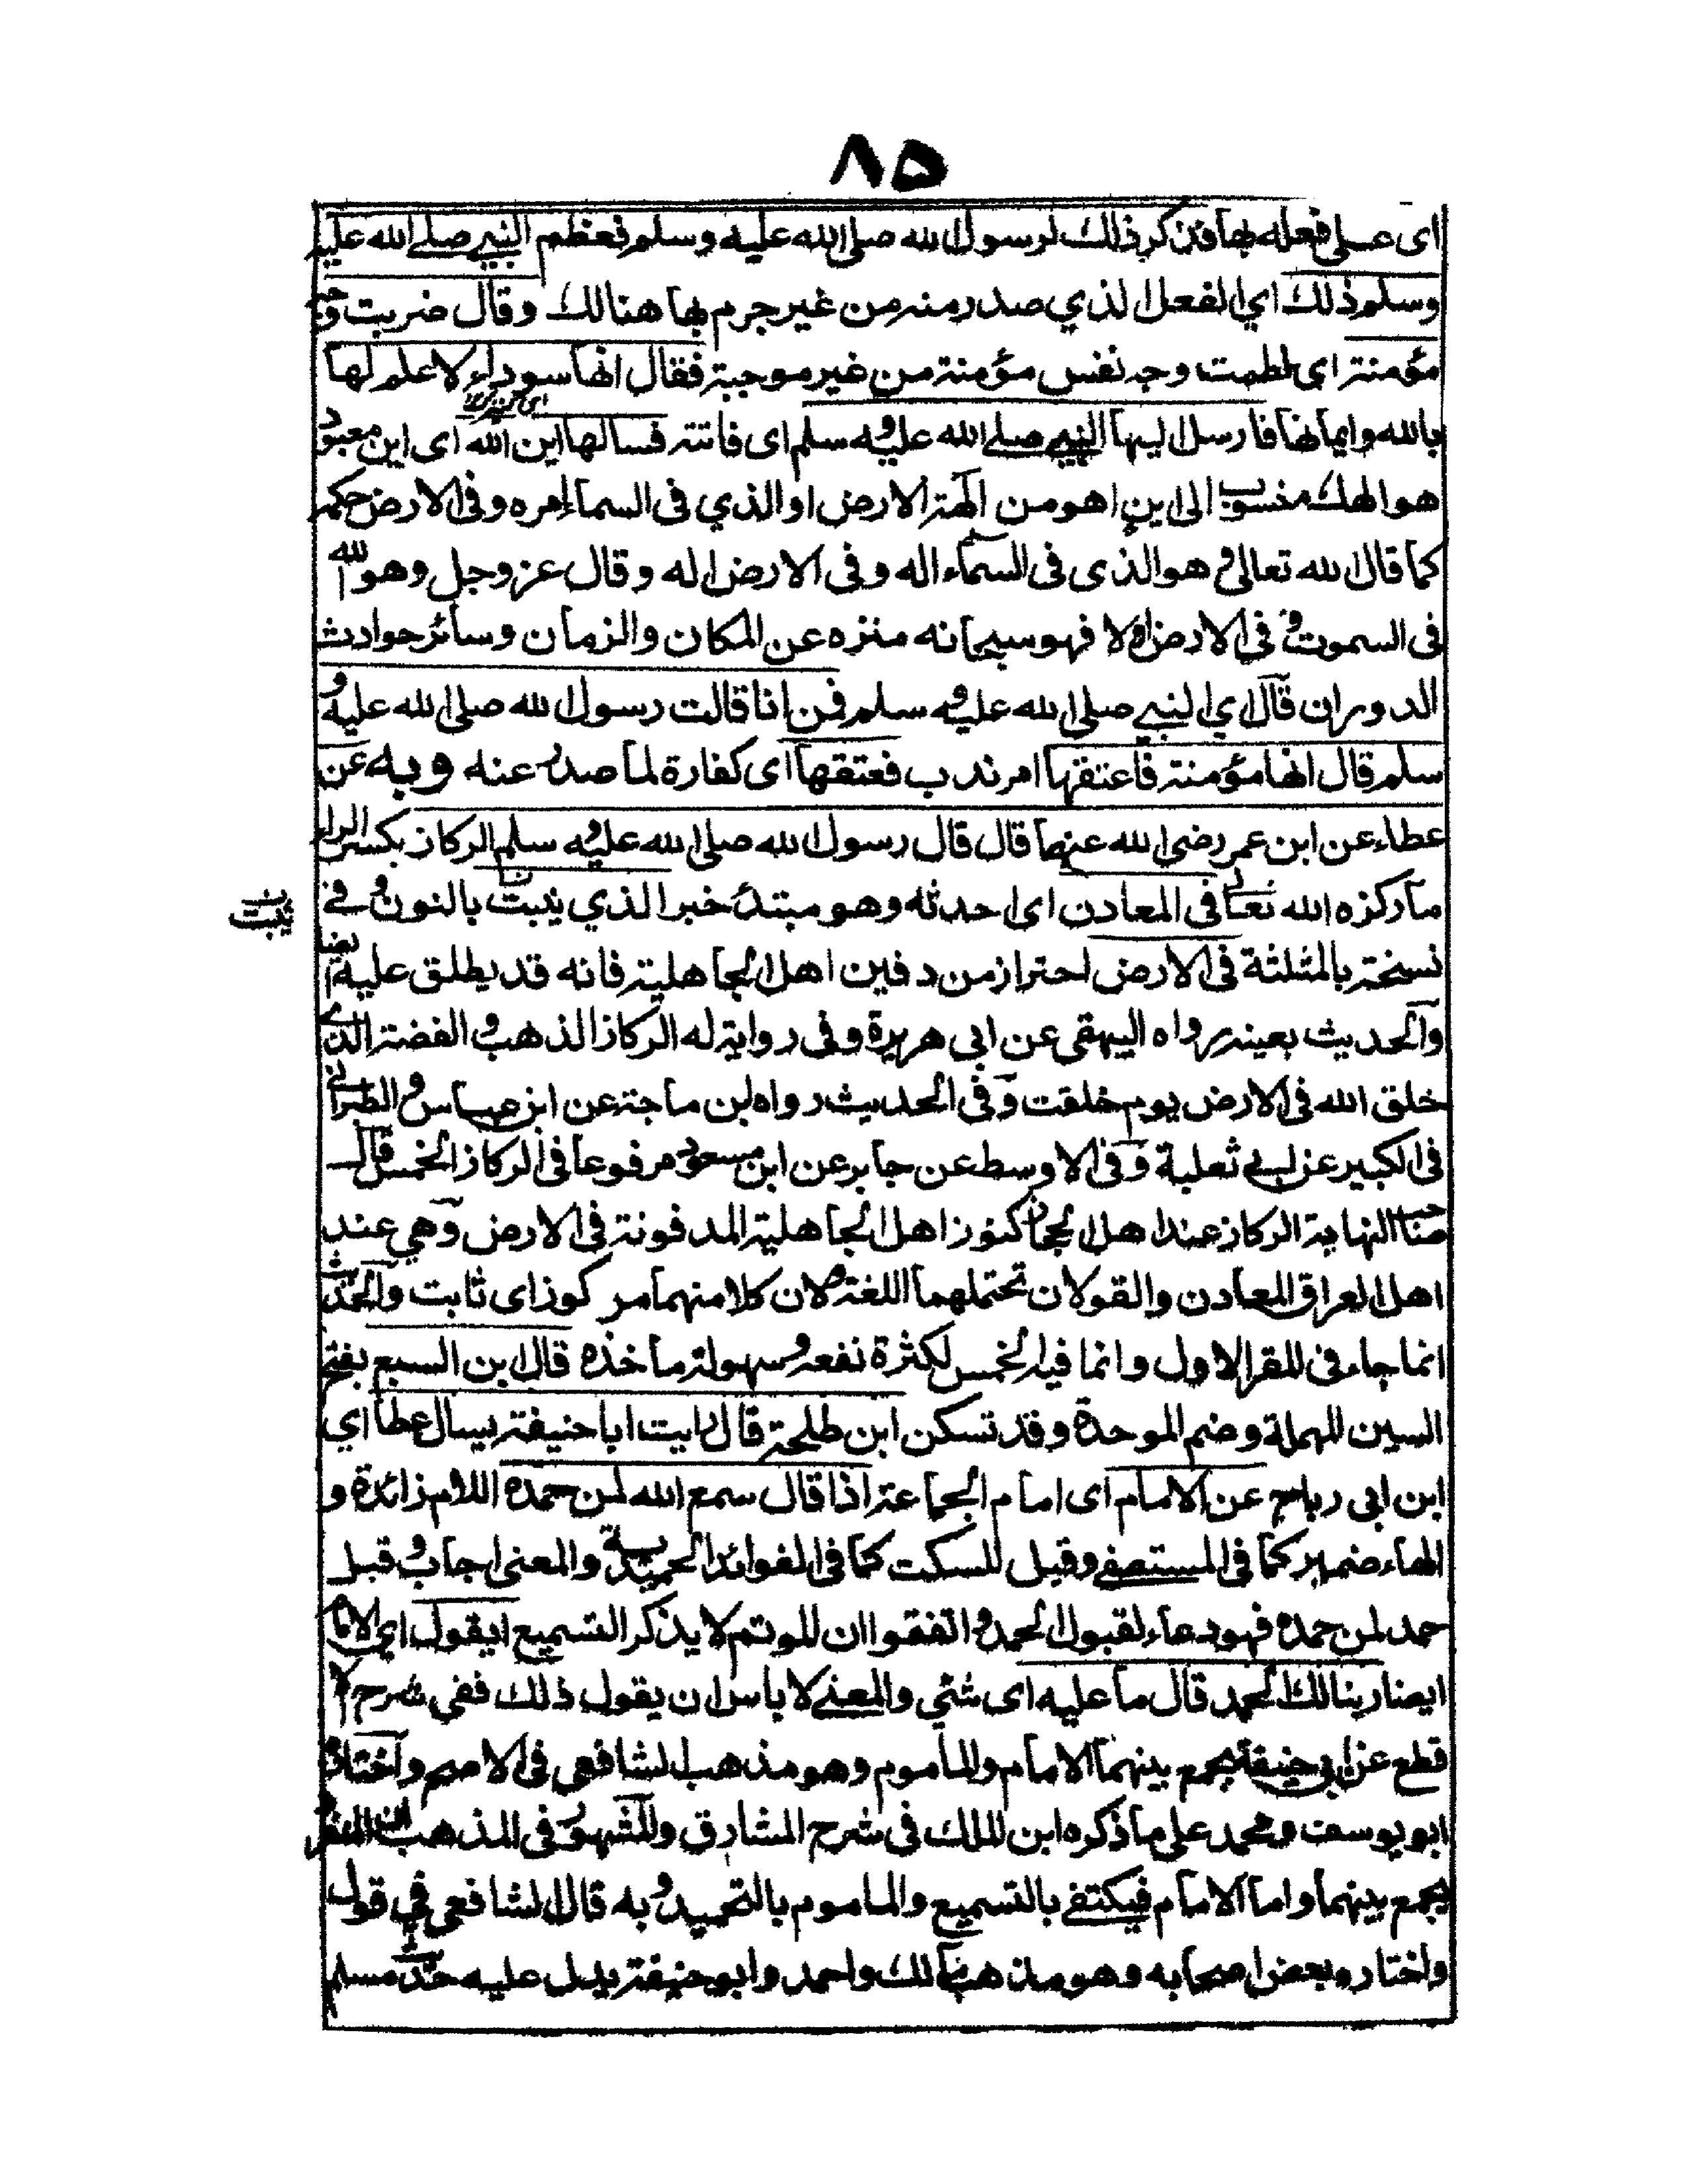 ٨٥
اى على فعله بها فذكر ذلك لرسول الله صلى الله عليه وسلم فعظم النبي صلے الله عليه
وسلم ذلك اي الفعل الذي صدر منه من غير جرم بها هنالك وقال ضربت وجه
مؤمنة اى لطمت وجه نفس مؤمنة من غير موجبة فقال انها سوداء لا علم لها
بالله وايمانها فارسل اليها النبي صلے الله عليه وسلم اى فاتته فسالها اين الله اى اين معبود
هو الهك منسوب الى اين اهو من الهة الارض او الذي فى السماء امره وفى الارض حكمه
كما قال الله تعالى وهو الذى فى السماء اله وفى الارض اله وقال عز وجل وهو الله
فى السموت وفى الارض والا فهو سبحانه منزه عن المكان والزمان وسائر حوادث
الدوران قال اي النبي صلى الله عليه وسلم فمن انا قالت رسول الله صلى الله عليه و
سلم قال انها مؤمنة فاعتقها امر ندب فعتقها اى كفارة لما صدر عنه وبه عن
عطاء عن ابن عمر رضى الله عنهما قال قال رسول الله صلى الله عليه وسلم الركاز بكسر الراء
ما ركزه الله تعالى فى المعادن اى احدثه وهو مبتدء خبر الذي ينبت بالنون وفى
ينبت
نسخة بالمثلثة فى الارض احتراز من دفين اهل الجاهلية فانه قد يطلق عليه ايضا
والحديث بعينه رواه البيهقى عن ابي هريرة وفى رواية له الركاز الذهب والفضة الذى
خلق الله فى الارض يوم خلقت وفى الحديث رواه ابن ماجة عن ابن عباس والطبرانى
فى الكبير عن ابي ثعلبة وفى الاوسط عن جابر عن ابن مسعود مرفوعا فى الركاز الخمس قال
صاحب النهاية الركاز عند اهل الحجاز كنوز اهل الجاهلية المدفونة فى الارض وهي عند
اهل العراق المعادن والقولان تحتملهما اللغة لان كلا منهما مركوز اى ثابت والحديث
انما جاء فى المقر الاول وانما فيه الخمس لكثرة نفعه وسهولة ماخذه قال ابن السبع بفتح
السين المهملة وضم الموحدة وقد تسكن ابن طلحة قال رايت ابا حنيفة يسال عطا اي
ابن ابى رباح عن الامام اى امام الجماعة اذا قال سمع الله لمن حمده اللام زائدة و
الهاء ضمير كما فى المستصفے وقيل للسكت كما فى الفوائد الحميدية والمعنى اجاب وقبل
حمد لمن حمده فهو دعاء لقبول الحمد واتفقوا ان المؤتم لا يذكر التسميع ايقول اي الامام
ايضا ربنا لك الحمد قال ما عليه اى شئي والمعنے لا باس ان يقول ذلك ففي شرح الا
قطع عن ابي حنيفة يجمع بينهما الامام والماموم وهو مذهب الشافعى فى الاصح واختاره
ابو يوسف ومحمد على ما ذكره ابن الملك فى شرح المشارق والمشهور فى المذهب ان المنفرد
يجمع بينهما واما الامام فيكتفے بالتسميع والماموم بالتحميد وبه قال الشافعى في قول
واختاره بعض اصحابه وهو مذهب مالك واحمد وابو حنيفة يدل عليه حديث مسلم